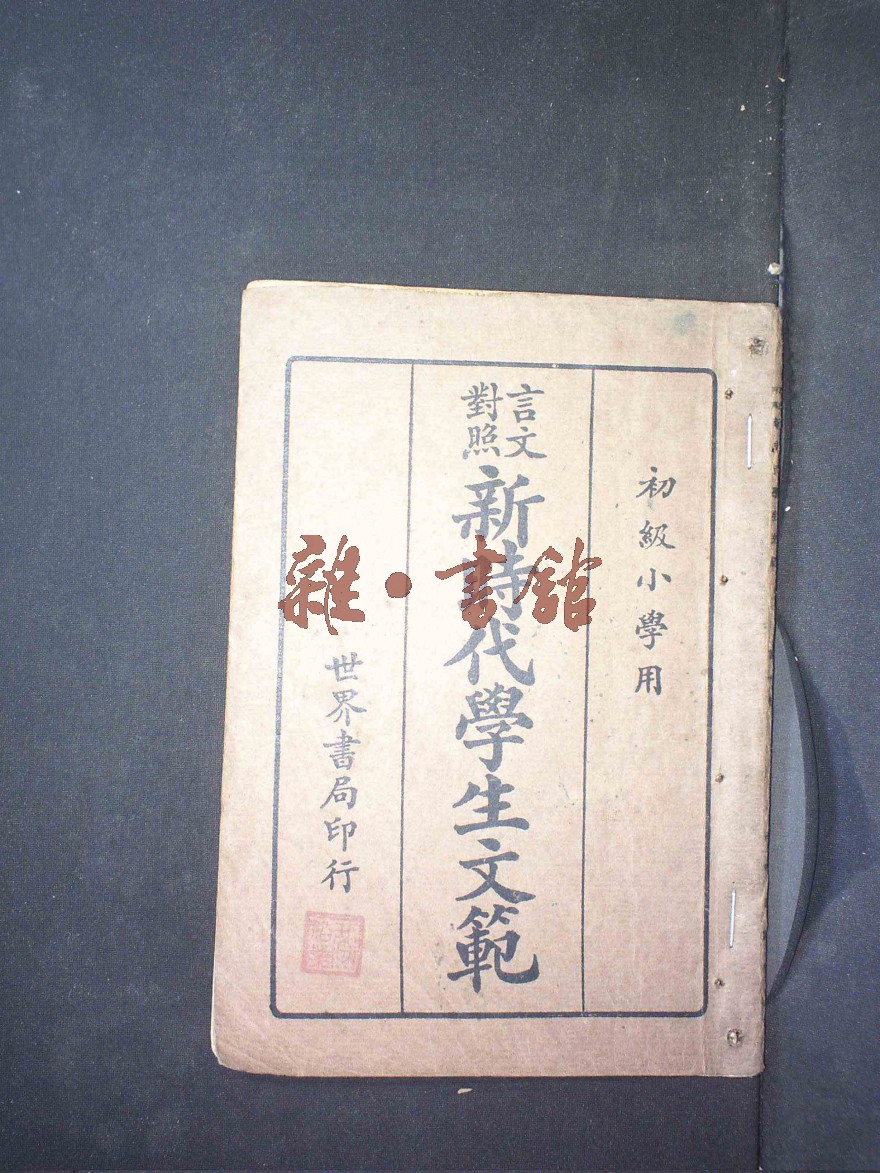 初級小學用
言文
對照
新時代學生文範
世界書局印行
雜·書館